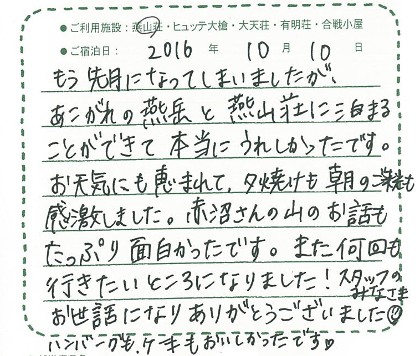 ●ご利用施設：燕山荘・ヒュッテ大槍・大天荘・有明荘・合戦小屋
●ご宿泊日： 2016 年 10 月 10 日
もう先月になってしまいましたが、
あこがれの燕岳と燕山荘に泊まる
ことができて本当にうれしかったです。
お天気にも恵まれて、夕焼けも朝のご来光も
感激しました。赤沼さんの山のお話も
たっぷり面白かったです。また何回も
行きたいところになりました！スタッフの
みなさま
お世話になりありがとうございました
ハンバーグも、ケーキもおいしかったです♥